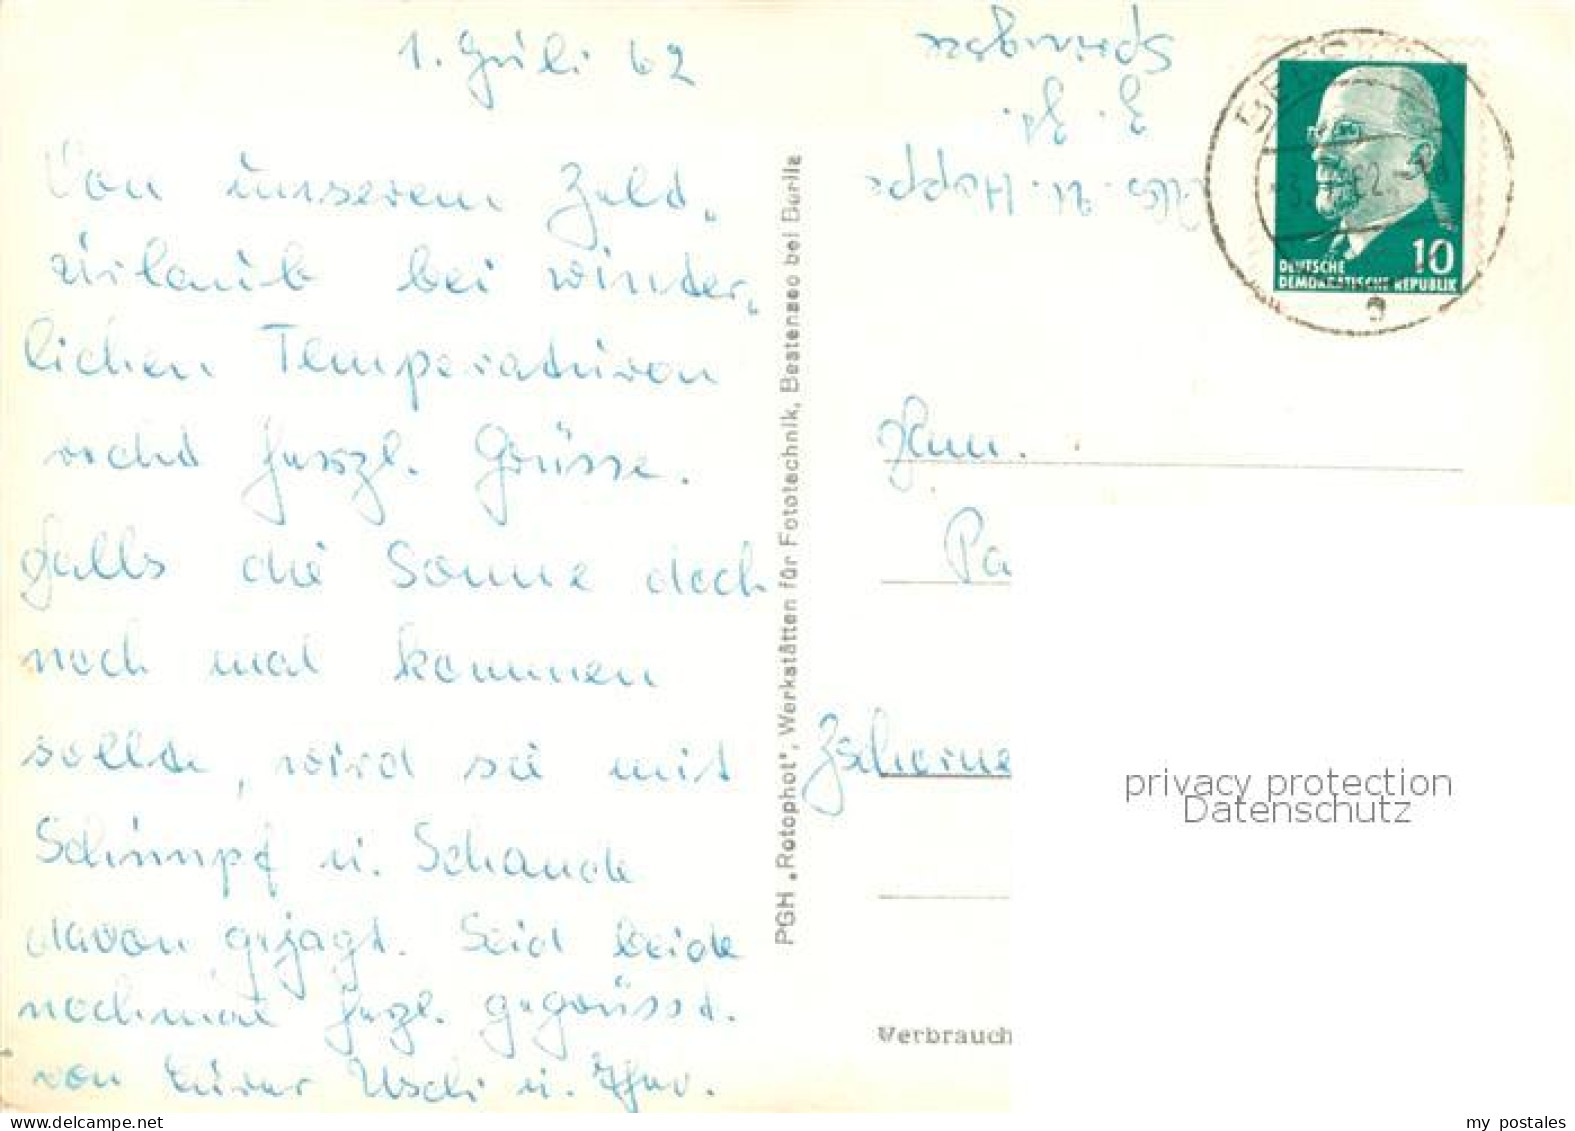 1. Juli 62
Von unserem Zelt-
urlaub bei winter-
lichen Temperaturen
recht herzl. Grüsse.
Falls die Sonne doch
noch mal kommen
sollte, wird sie mit
Schimpf u. Schande
davon gejagt. Seid beide
nochmal herzl. gegrüsst.
von Eurer Uschi u.
PGH „Rotophot", Werkstätten für Fototechnik, Bestensee bei Berlin
Abs. U. Hoppe
z. Zt.
DEUTSCHE
DEMOKRATISCHE REPUBLIK
10
Fam.
Pa
Zscherne
privacy protection
Datenschutz
Verbrauch
my postales